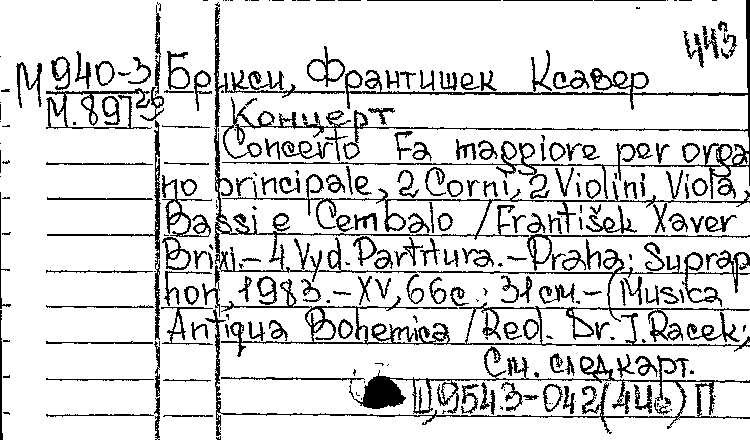 443
М 940-3 Брикси, Франтишек Ксавер
М.897 Концерт
Concerto Fa maggiore per orga
no principale, 2 Corni, 2 Violini, Viola,
Bassi e Cembalo / František Xaver
Brixi.- 4. Vyd. Partitura. - Praha; Suprap
hon, 1983. - XV, 66с.; 31см. - (Musica
Antiqua Bohemica / Red. Dr. J. Racek;
См. след.карт.
9543-042(4Че) П